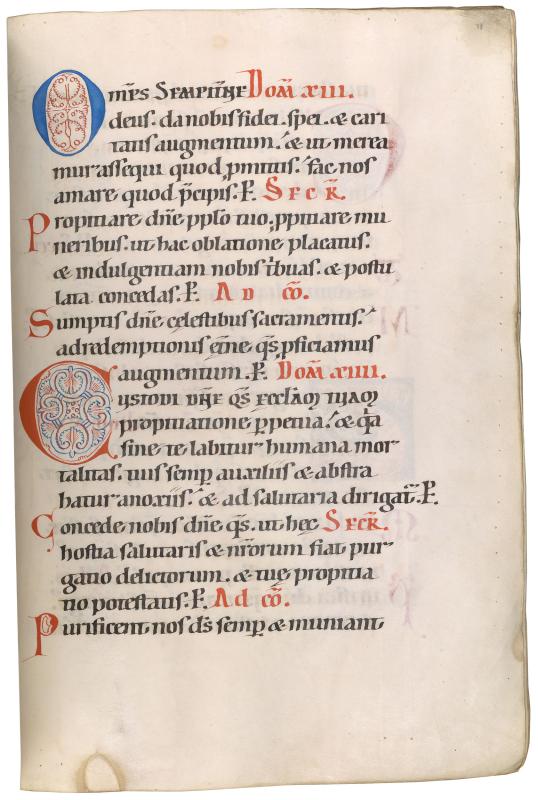 Omps SEMPIT'NE DOM̄ XIII.
deus. da nobis fidei. spei. & cari
tatis augmentum. & ut merea
mur assequi quod pmittis. fac nos
amare quod p̄cipis. P. SECR̄.
Propitiare dn̄e pp̄lo tuo. ppitiare mu
neribus. ut hac oblatione placatus.
& indulgentiam nobis t̄buas. & postu
lata concedas. P. AD CŌ.
Sumptis dn̄e cęlestibus sacramentis.
ad redemptionis ęt̄ne q̄s. pficiamus
augmentum. P. DOM̄ XIIII.
CUSTODI DN̄E Q̄S ECCLAM TUAM
propitiatione ꝑpetua. & q̄a
sine te labitur humana mor
talitas. tuis semꝑ auxiliis & abstra
hatur a noxiis. & ad salutaria dirigat̄. P.
Concede nobis dn̄e q̄s. ut hęc SECR̄.
hostia salutaris & nr̄orum fiat pur
gatio delictorum. & tuę propitia
tio potestatis. P. Ad cō.
Purificent nos d̄s semꝑ & muniant